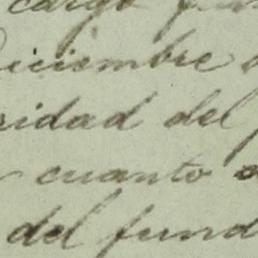 cargo
Diciembre
ridad del
cuanto
del fund